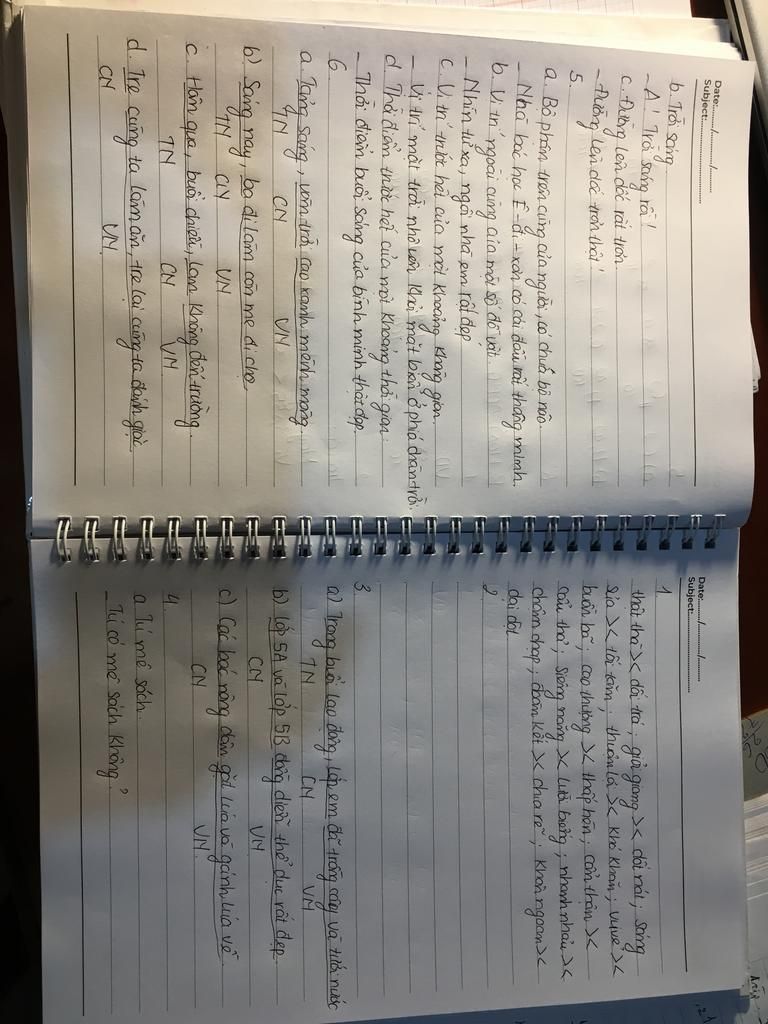 Date:....../....../......
Subject:........................
b. Trời sáng.
- A! Trời sáng rồi!
c. Đường lên dốc rất trơn.
- Đường lên dốc trơn thật!
5.
a. Bộ phận trên cùng của người, có chứa bộ não.
- Nhà bác học Ê-đi-xơn có cái đầu rất thông minh.
b. Vị trí ngoài cùng của một số đồ vật.
- Nhìn từ xa, ngôi nhà em rất đẹp
c. Vị trí trước hết của một khoảng không gian.
- Vị trí mặt trời nhô lên khỏi mặt biển ở phía chân trời.
d. Thời điểm trước hết của một khoảng thời gian.
- Thời điểm buổi sáng của bình minh thật đẹp.
6.
a. Tảng sáng, vòm trời cao xanh mênh mông.
TN CN VN
b) Sáng nay, bố đi làm còn mẹ đi chợ
TN CN VN
c. Hôm qua, buổi chiều, Lan không đến trường.
TN CN VN
d. Tre cùng ta làm ăn, tre lại cùng ta đánh giặc
CN VN
Date:....../....../......
Subject:........................
1.
thật thà >< dối trá; giỏi giang >< dốt nát; sáng
sủa >< tối tăm; thuận lợi >< khó khăn; vui vẻ ><
buồn bã; cao thượng >< thấp hèn; cẩn thận ><
cẩu thả; siêng năng >< lười biếng; nhanh nhảu ><
chậm chạp; đoàn kết >< chia rẽ; khôn ngoan ><
dại dột
2
3
a) Trong buổi lao động, lớp em đã trồng cây và tưới nước
TN CN VN
b) Lớp 5A và lớp 5B đồng diễn thể dục rất đẹp
CN VN
c) Các bác nông dân gặt lúa và gánh lúa về
CN VN
4.
a. Tú mê sách.
- Tú có mê sách không?